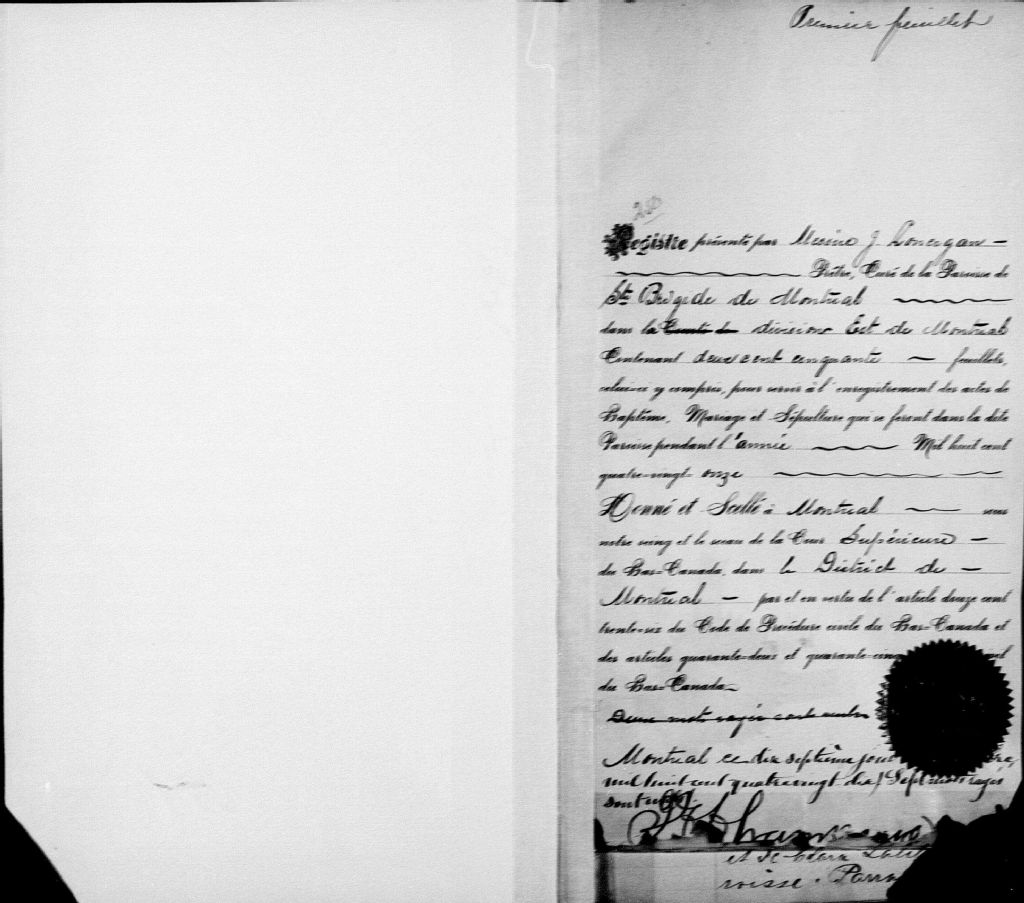 Premier feuillet
250
Registre présenté par Messire J. Lonergan —
Prêtre, Curé de la Paroisse de
Ste Brigide de Montréal
dans la Comté de division Est de Montréal
Contenant deux cent cinquante — feuillets,
celui-ci y compris, pour servir à l'enregistrement des actes de
Baptême, Mariage et Sépulture qui se feront dans la dite
Paroisse pendant l'année Mil huit cent
quatre-vingt- onze
Donné et Scellé à Montréal sous
notre seing et le sceau de la Cour Supérieure —
du Bas-Canada, dans le District de —
Montréal — par et en vertu de l'article douze cent
trente-six du Code de Procédure civile du Bas-Canada et
des articles quarante-deux et quarante-cinq
du Bas-Canada
Deux mots rayés sont nuls
Montréal ce dix septième jour
mil huit cent quatre vingt dix / Sept mots rayés
sont nuls.
et
roisse.